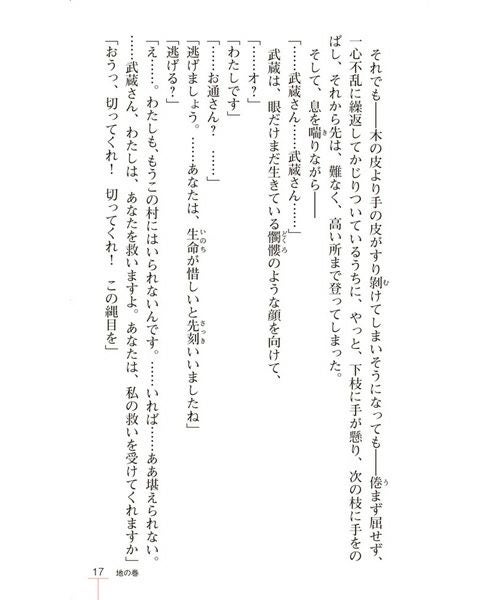 それでも――木の皮より手の皮がすり剝けてしまいそうになっても――倦まず屈せず、
一心不乱に繰返してかじりついているうちに、やっと、下枝に手が懸り、次の枝に手をの
ばし、それから先は、難なく、高い所まで登ってしまった。
そして、息を喘りながら――
「……武蔵さん……武蔵さん……」
武蔵は、眼だけまだ生きている髑髏のような顔を向けて、
「……オ？」
「わたしです」
「……お通さん？　……」
「逃げましょう。……あなたは、生命が惜しいと先刻いいましたね」
「逃げる？」
「え……。わたしも、もうこの村にはいられないんです。……いれば……ああ堪えられない。
……武蔵さん、わたしは、あなたを救いますよ。あなたは、私の救いを受けてくれますか」
「おうっ、切ってくれ！　切ってくれ！　この縄目を」
む
う
き
どくろ
いのち
さっき
17 地の巻